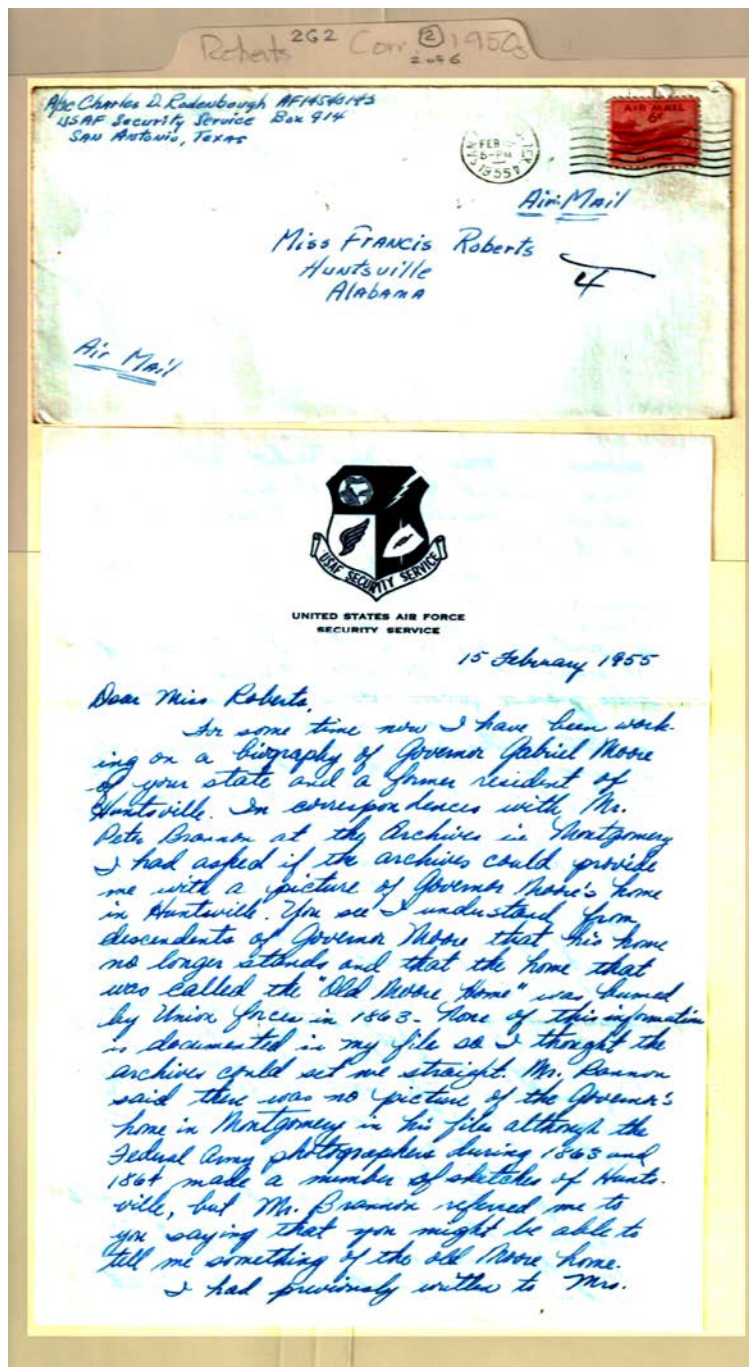 Roberts 2G2 Corr ② 1950s
2 of 6
A/2c Charles D. Rodenbough AF14540145
USAF Security Service Box 914
San Antonio, Texas
FEB
6-PM
1955
TEX.
AIR MAIL
6¢
Air Mail
Miss Francis Roberts
Huntsville
Alabama
4
Air Mail
USAF SECURITY SERVICE
UNITED STATES AIR FORCE
SECURITY SERVICE
15 February 1955
Dear Miss Roberts,
For some time now I have been work-
ing on a biography of Governor Gabriel Moore
of your state and a former resident of
Huntsville. In correspondences with Mr.
Peter Brannon at the Archives in Montgomery
I had asked if the archives could provide
me with a picture of Governor Moore's home
in Huntsville. You see I understand from
descendents of Governor Moore that his home
no longer stands and that the home that
was called the "Old Moore Home" was burned
by Union forces in 1863- None of this information
is documented in my file so I thought the
archives could set me straight. Mr. Bannon
said there was no picture of the Governor's
home in Montgomery in his files although the
Federal Army photographers during 1863 and
1864 made a member of sketches of Hunts-
ville, but Mr. Brannon referred me to
you saying that you might be able to
tell me something of the old Moore home.
I had previously written to Mrs.